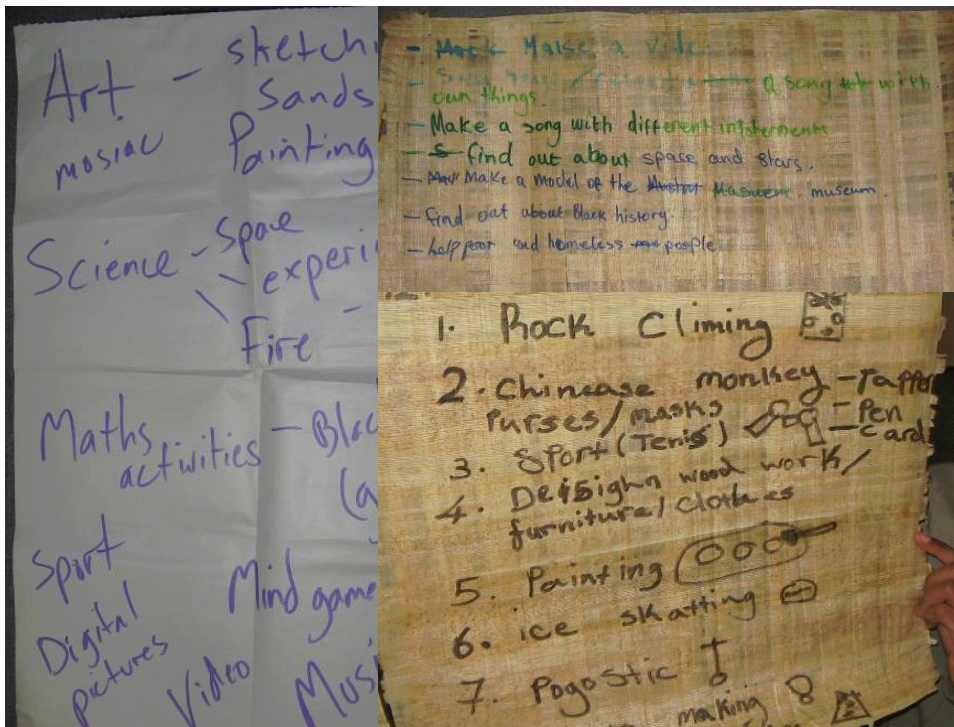 Art - sketch
Sands
mosiac Painting
Science - Space
experi
Fire -
Maths - Blac
activities
Sport
Mind game
Digital
pictures
Video
Mus
- Make a vide
a song with
own things.
- Make a song with different
- find out about space and stars.
- Make a model of the museum.
- find out about Black history.
- help poor and homeless people.
1. Rock Climing
2. Chinease monkey -
Purses/masks - Pen
3. Sport (Tenis) - Card
4. Deisighn wood work/
furniture/clothes
5. Painting
6. ice skatting
7. Pogostic
making